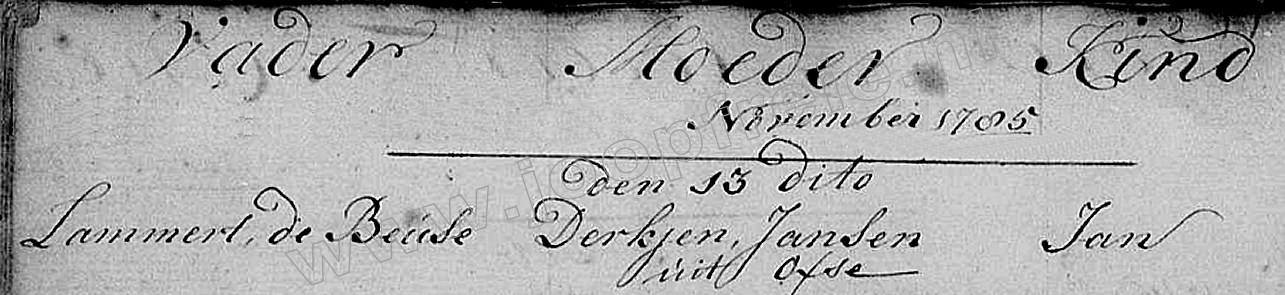 Vader Moeder Kind
November 1785
den 13 dito
Lammert, de Beuse Derkjen, Jansen Jan
uit Oxse